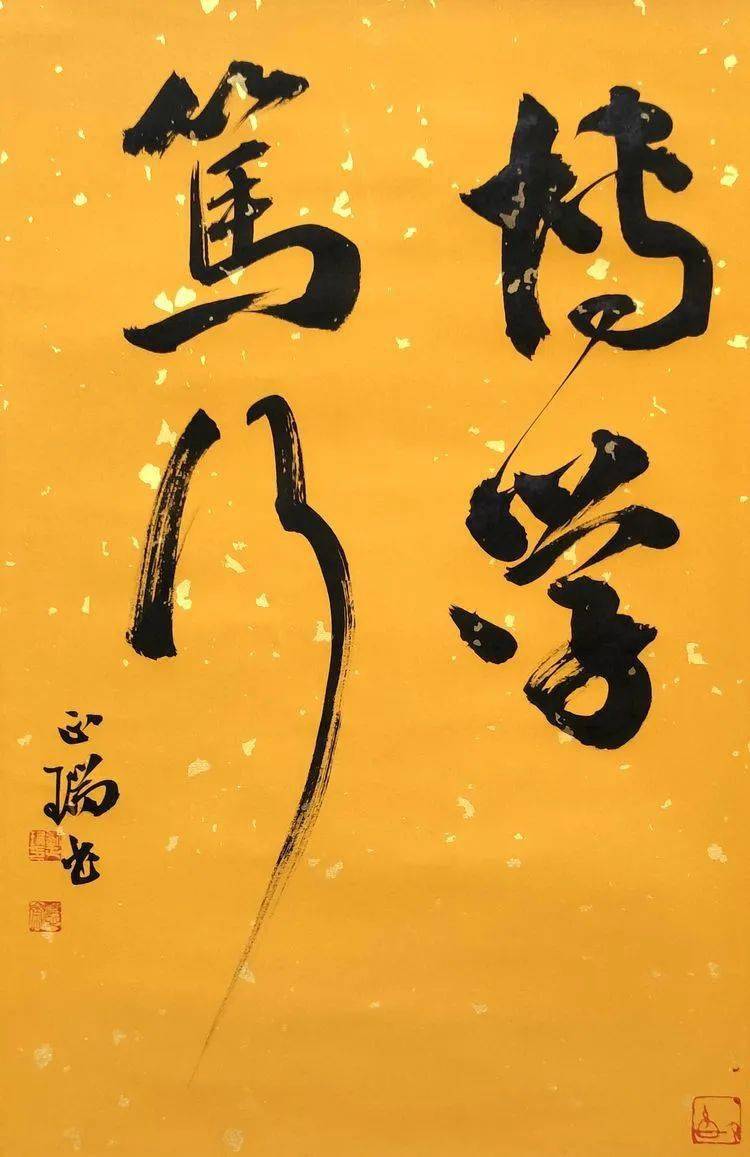 博学
笃行
正瑞书